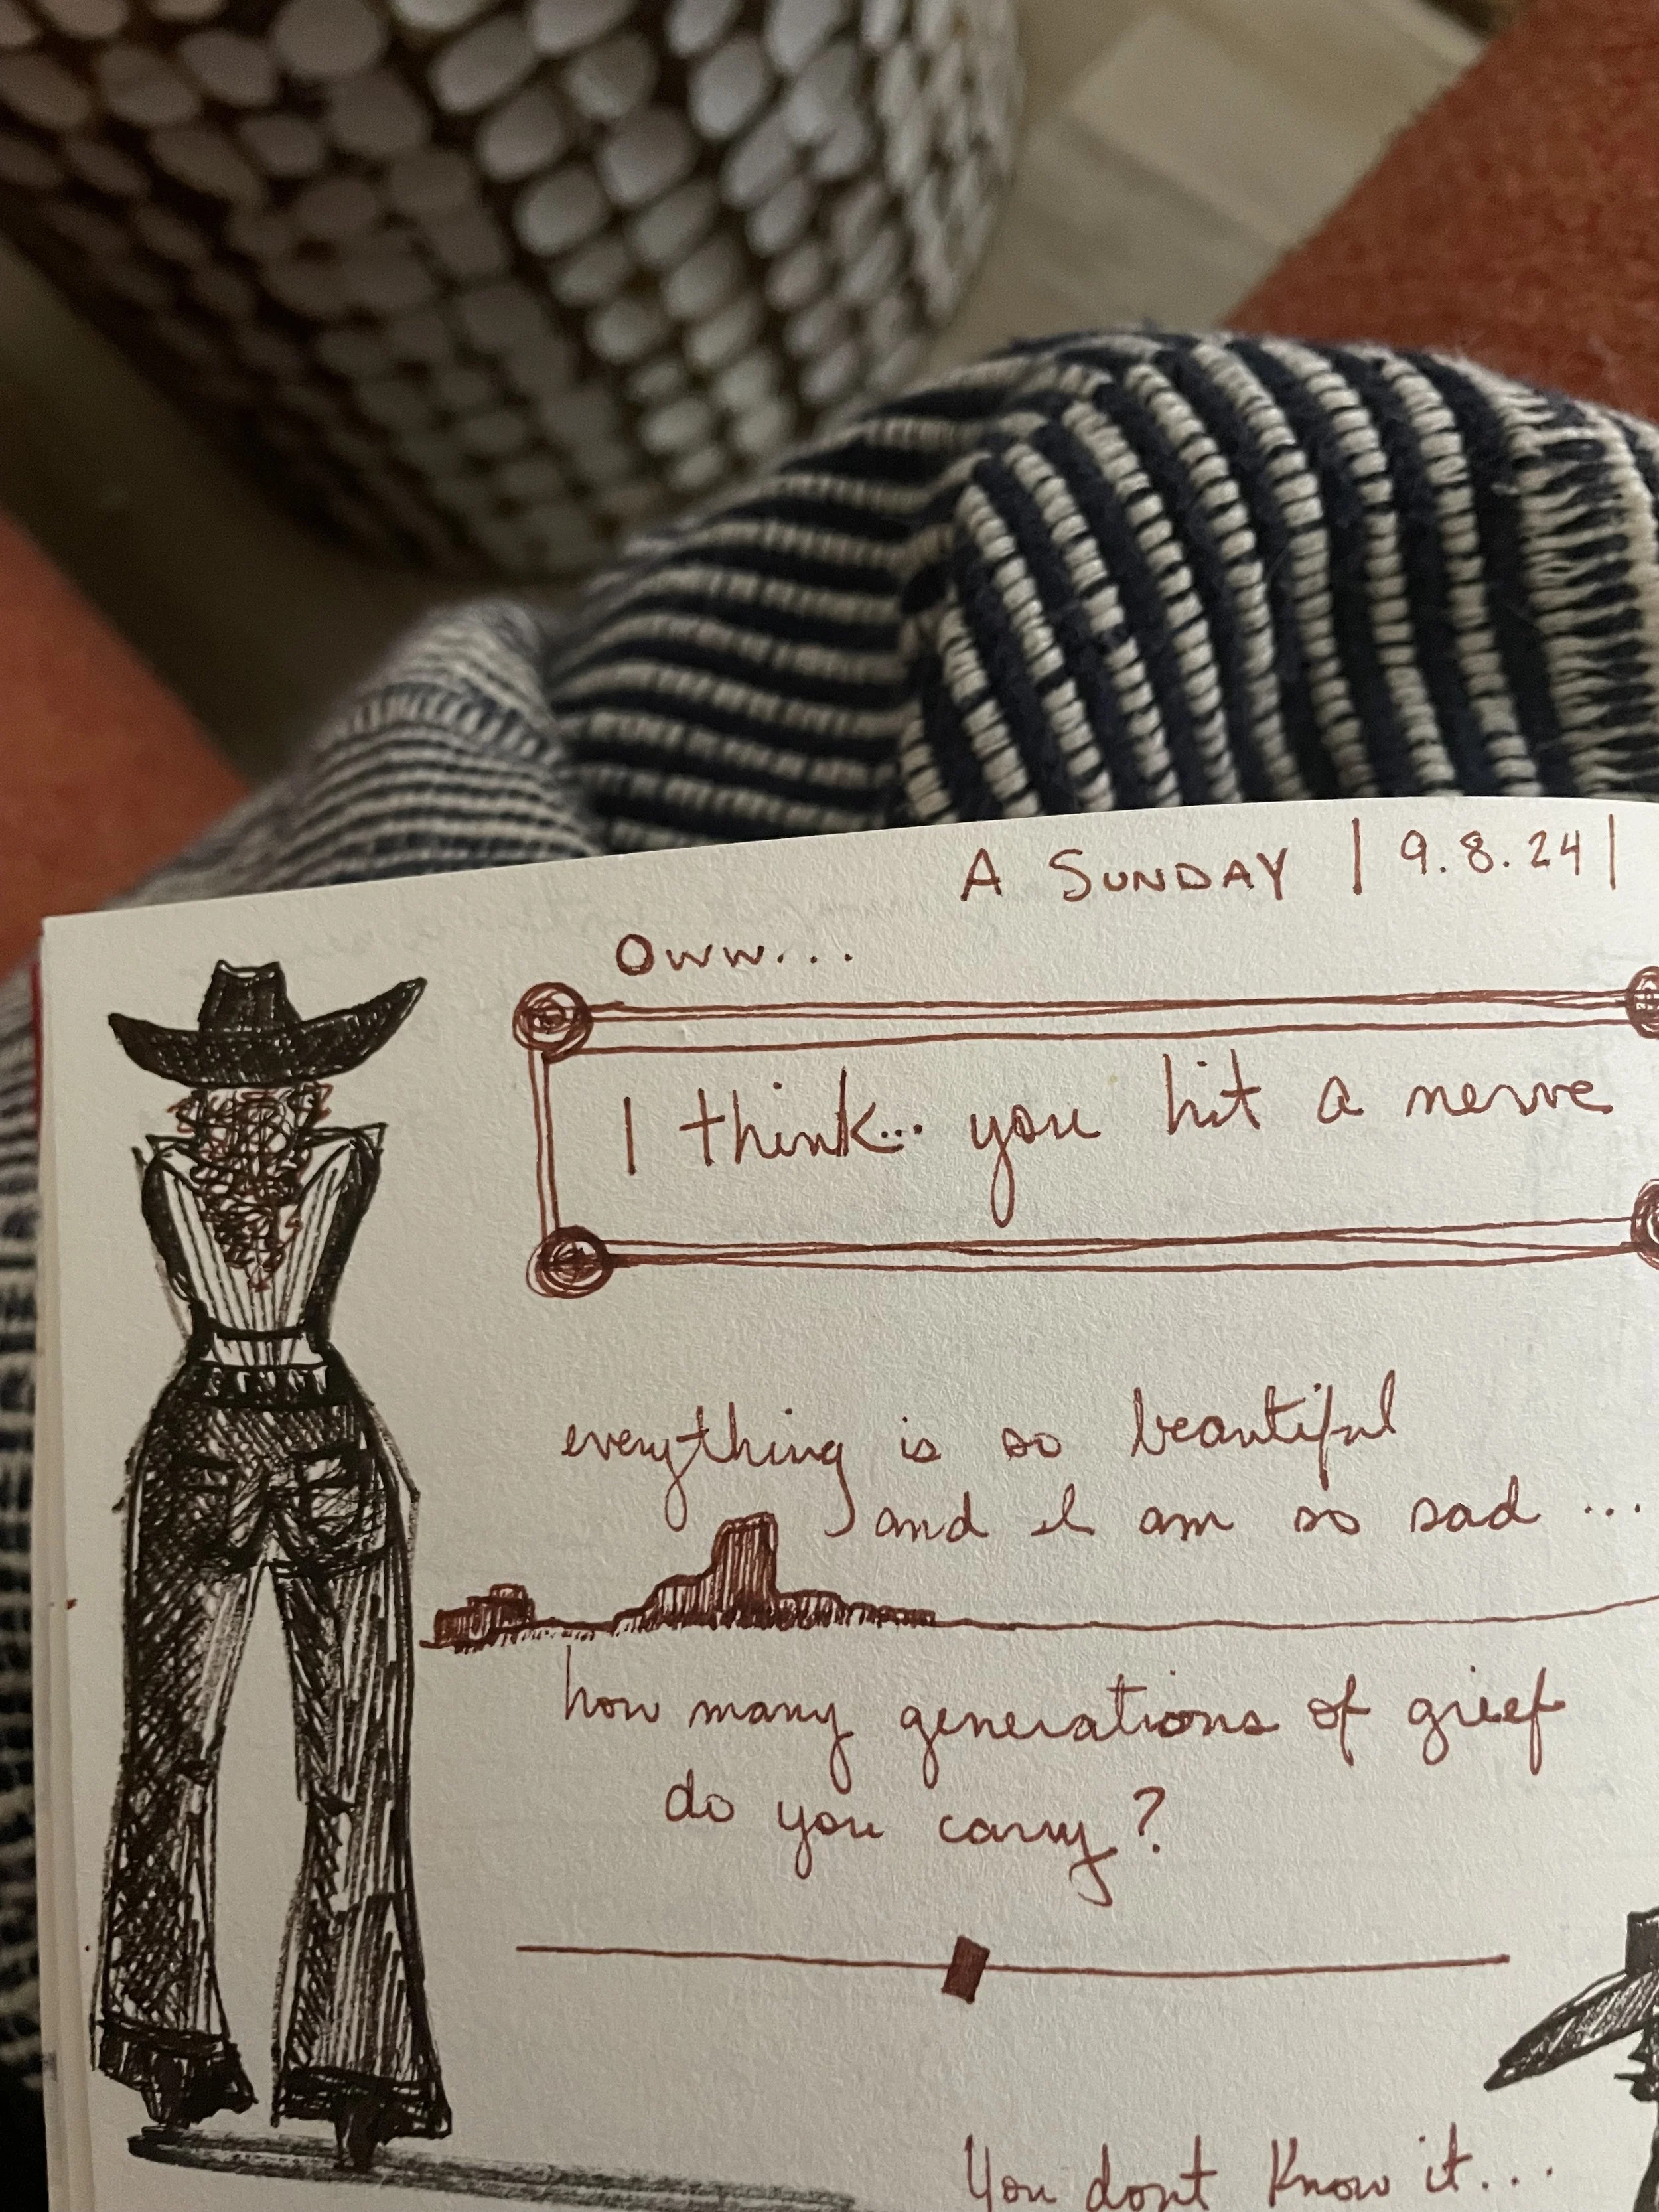 A SUNDAY | 9.8.24 |
Oww...
I think... you hit a nerve
everything is so beautiful
and I am so sad ...
how many generations of grief
do you carry?
You dont know it...